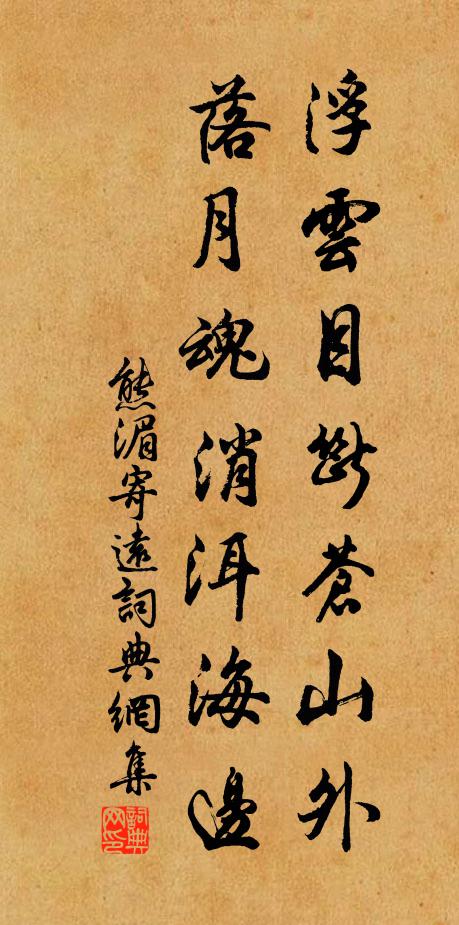 浮雲目斷蒼山外
落月魂消洱海邊
熊湄寄遠詞典網集
詞典網印